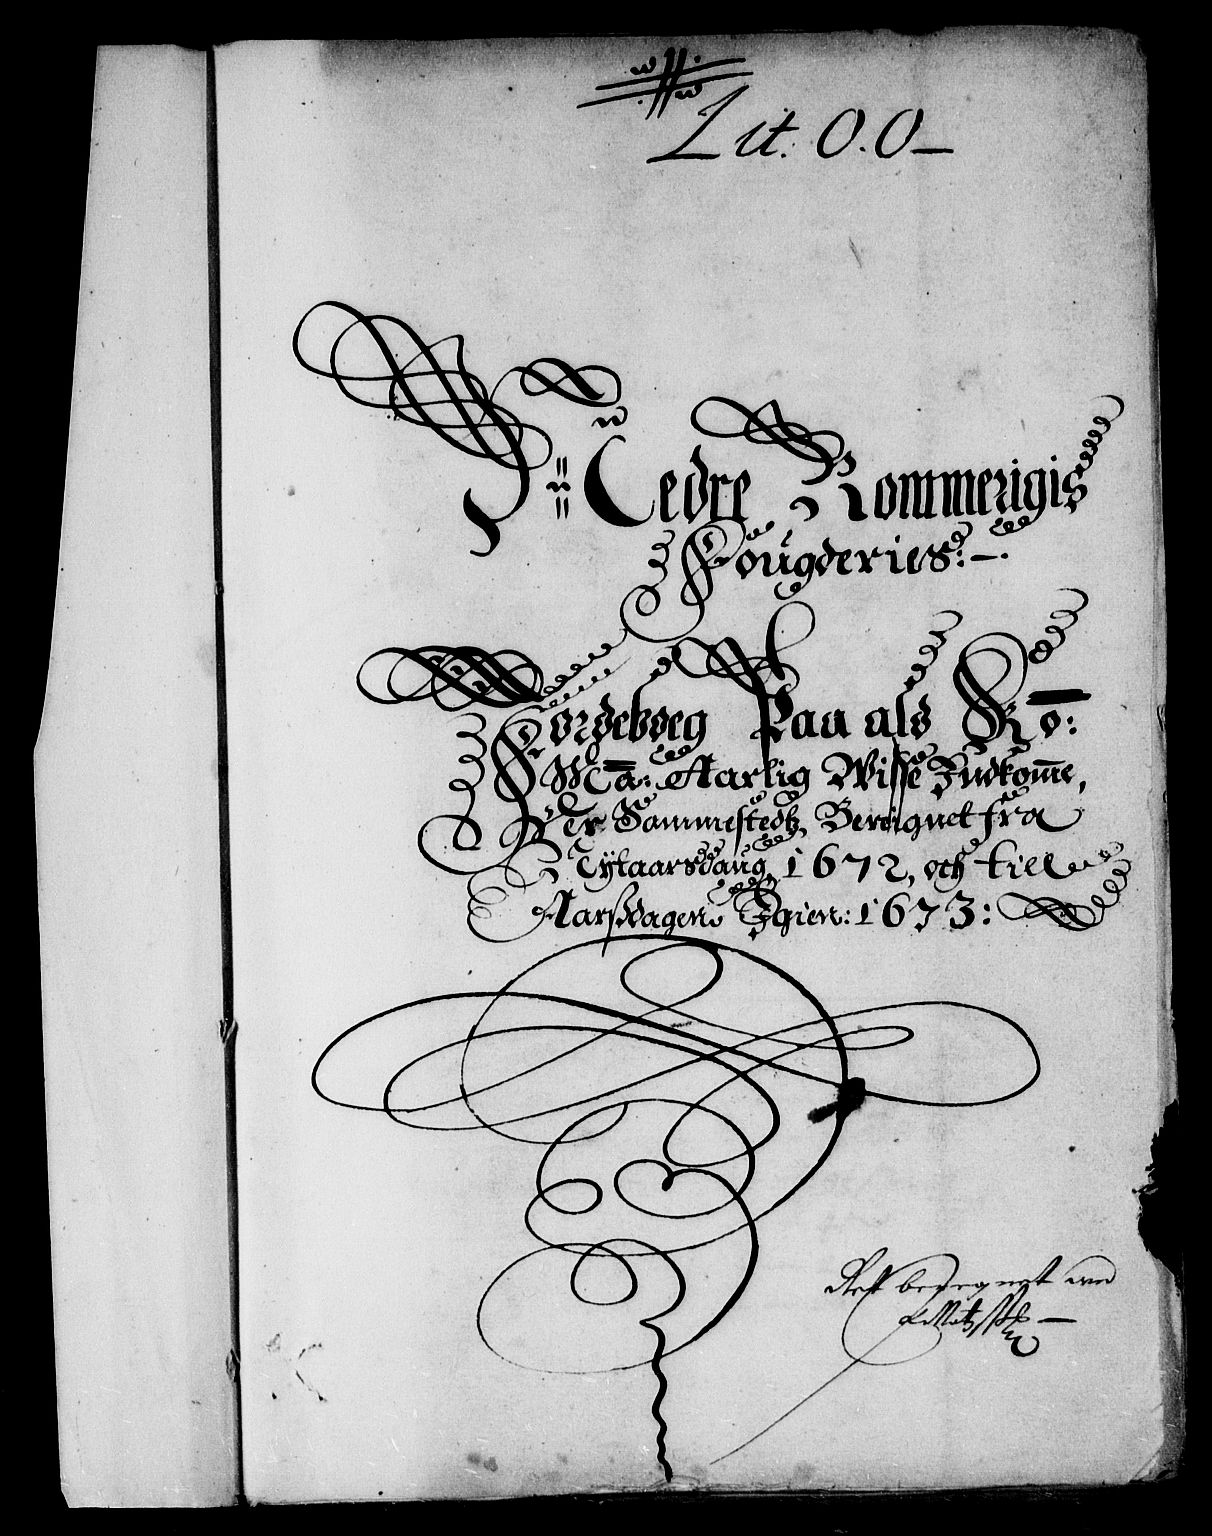 Lit: O.O
Nedre Rommerigis
Fougderies:
Jordeboeg Paa als Ko:
Ma: Aarlig Wisse Indkome,
Der Sammestedtz, Beregnet fra
Nytaarsdaug, 1672, och till
Aarsdagen Igien: 1673: